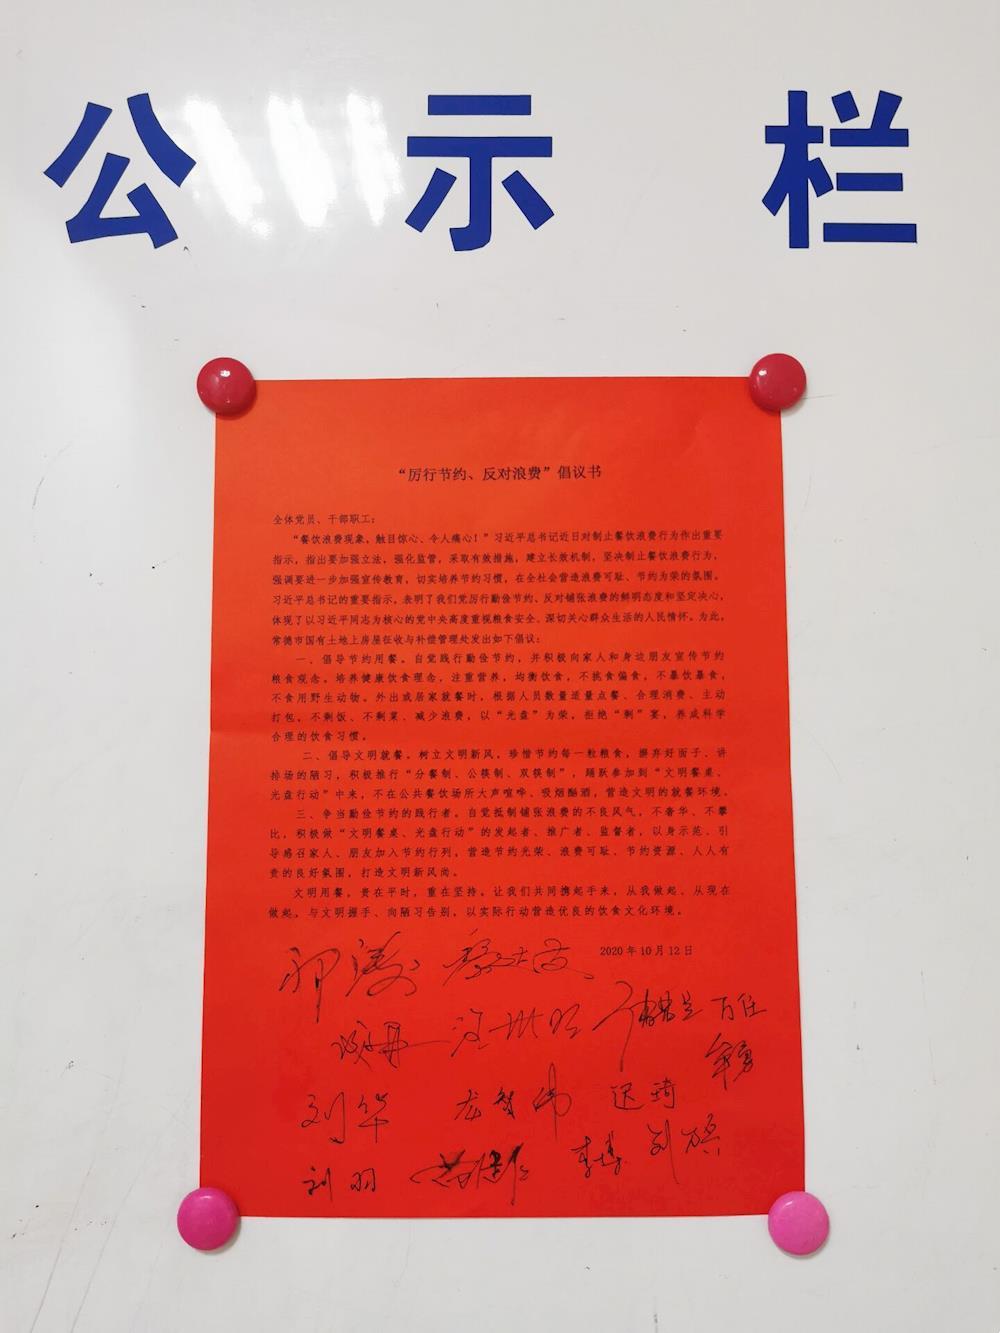 公示栏
“厉行节约、反对浪费”倡议书
全体党员、干部职工：
“餐饮浪费现象，触目惊心、令人痛心！”习近平总书记近日对制止餐饮浪费行为作出重要
指示，指出要加强立法，强化监管，采取有效措施，建立长效机制，坚决制止餐饮浪费行为，
强调要进一步加强宣传教育，切实培养节约习惯，在全社会营造浪费可耻、节约为荣的氛围。
习近平总书记的重要指示，表明了我们党厉行勤俭节约、反对铺张浪费的鲜明态度和坚定决心，
体现了以习近平同志为核心的党中央高度重视粮食安全、深切关心群众生活的人民情怀。为此，
常德市国有土地上房屋征收与补偿管理处发出如下倡议：
一、倡导节约用餐。自觉践行勤俭节约，并积极向家人和身边朋友宣传节约
粮食观念。培养健康饮食理念，注重营养，均衡饮食，不挑食偏食，不暴饮暴食，
不食用野生动物。外出或居家就餐时，根据人员数量适量点餐、合理消费、主动
打包，不剩饭、不剩菜、减少浪费，以“光盘”为荣，拒绝“剩”宴，养成科学
合理的饮食习惯。
二、倡导文明就餐。树立文明新风，珍惜节约每一粒粮食，摒弃好面子、讲
排场的陋习，积极推行“分餐制、公筷制、双筷制”，踊跃参加到“文明餐桌、
光盘行动”中来，不在公共餐饮场所大声喧哗、吸烟酗酒，营造文明的就餐环境。
三、争当勤俭节约的践行者。自觉抵制铺张浪费的不良风气，不奢华、不攀
比，积极做“文明餐桌、光盘行动”的发起者、推广者、监督者，以身示范、引
导感召家人、朋友加入节约行列，营造节约光荣、浪费可耻、节约资源、人人有
责的良好氛围，打造文明新风尚。
文明用餐，贵在平时，重在坚持。让我们共同携起手来，从我做起、从现在
做起，与文明握手、向陋习告别，以实际行动营造优良的饮食文化环境。
2020年10月12日
刘华 龙智伟 迟琦
刘羽 李博